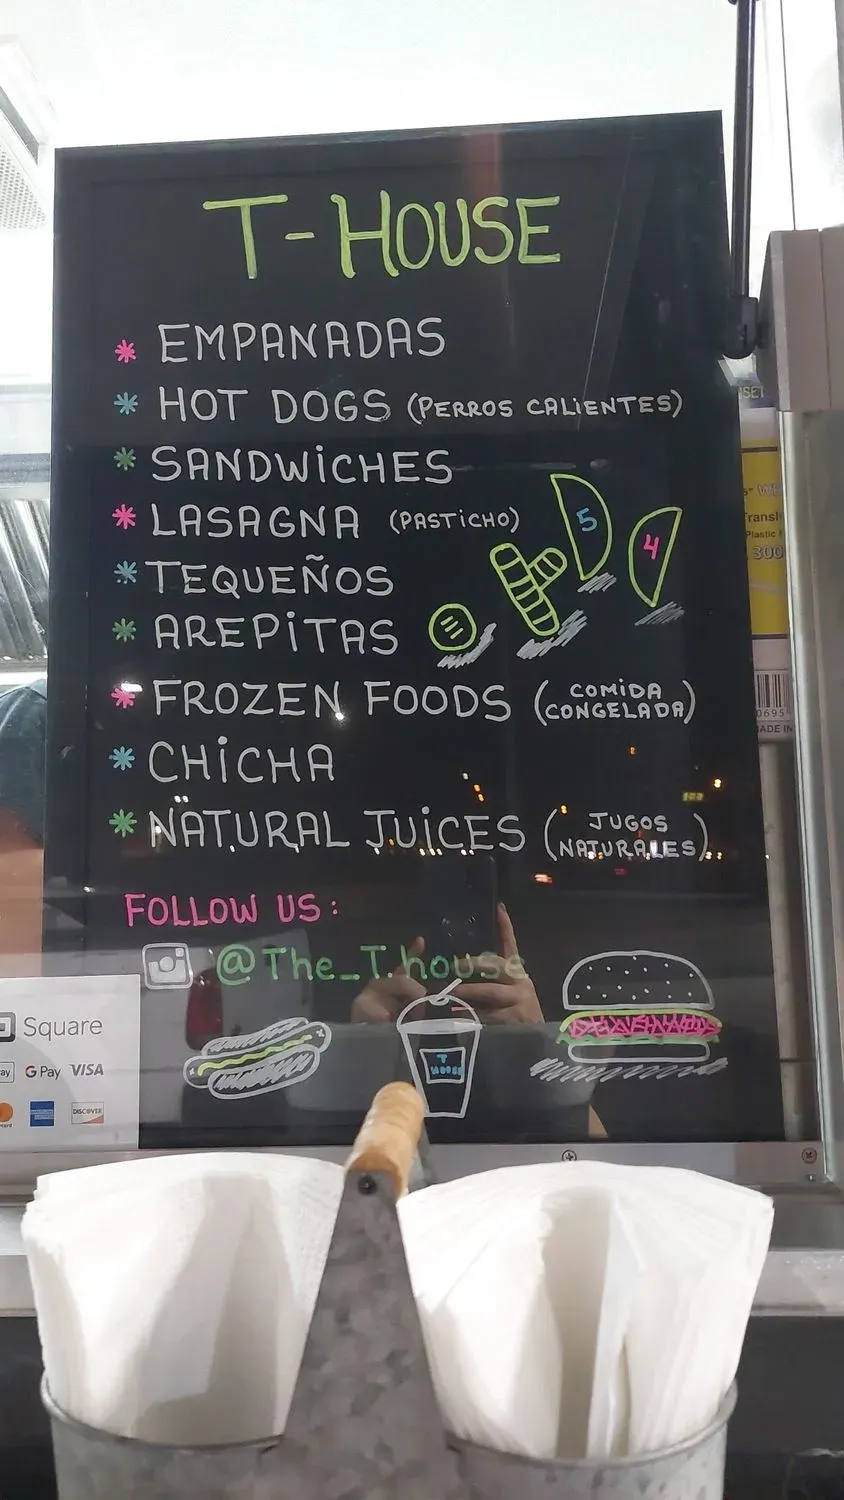 T-HOUSE
* EMPANADAS
* HOT DOGS (PERROS CALiENTES)
* SANDWiCHES
* LASAGNA (PASTiCHO)
* TEQUEÑOS
* AREPiTAS
* FROZEN FOODS (COMiDA CONGELADA)
* CHiCHA
* NATURAL JUiCES (JUGOS NATURALES)
5
4
FOLLOW US:
@The_T.house
T
HOUSE
Square
G Pay VISA
DISCOVER
300